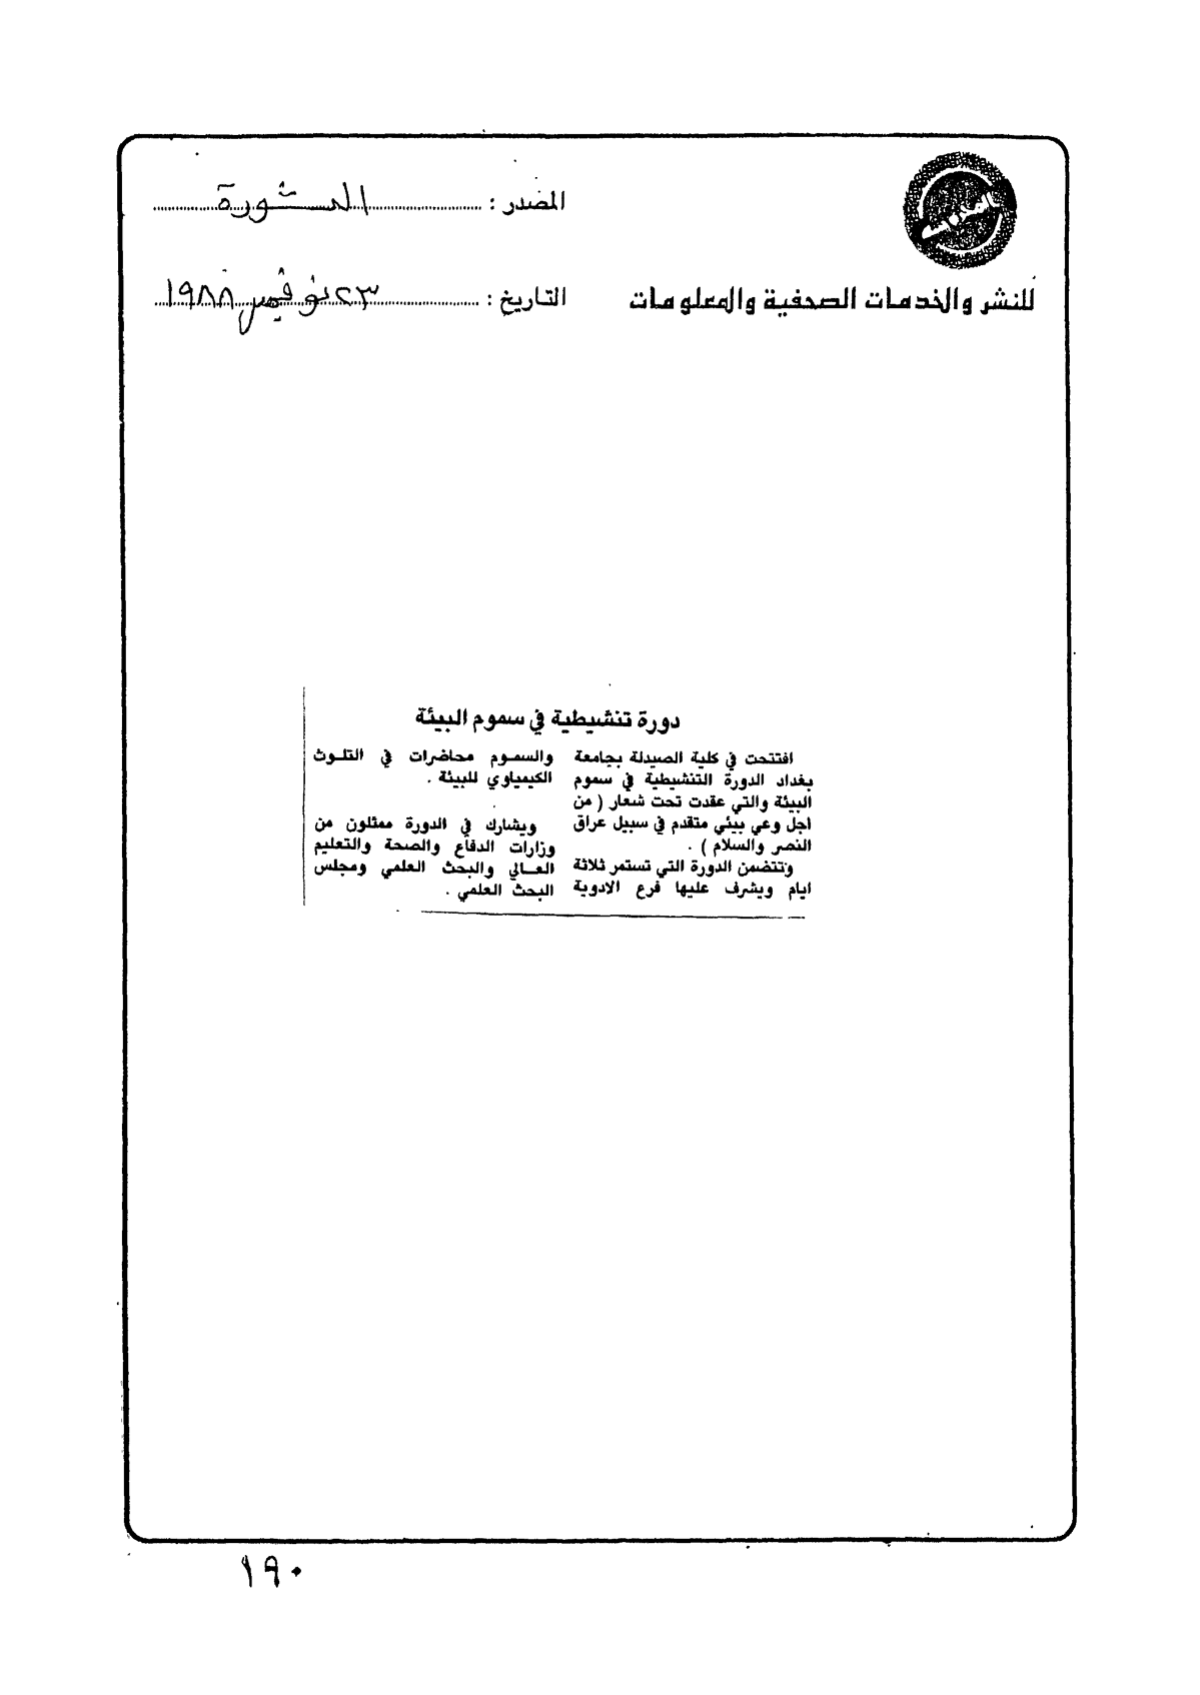 المصدر : الثورة
للنشر والخدمات الصحفية والمعلومات
التاريخ : ٢٣ نوفمبر ١٩٨٨
دورة تنشيطية في سموم البيئة
افتتحت في كلية الصيدلة بجامعة
بغداد الدورة التنشيطية في سموم
البيئة والتي عقدت تحت شعار ( من
اجل وعي بيئي متقدم في سبيل عراق
النصر والسلام ) .
وتتضمن الدورة التي تستمر ثلاثة
ايام ويشرف عليها فرع الادوية
والسموم محاضرات في التلوث
الكيمياوي للبيئة .
ويشارك في الدورة ممثلون من
وزارات الدفاع والصحة والتعليم
العالي والبحث العلمي ومجلس
البحث العلمي .
١٩٠